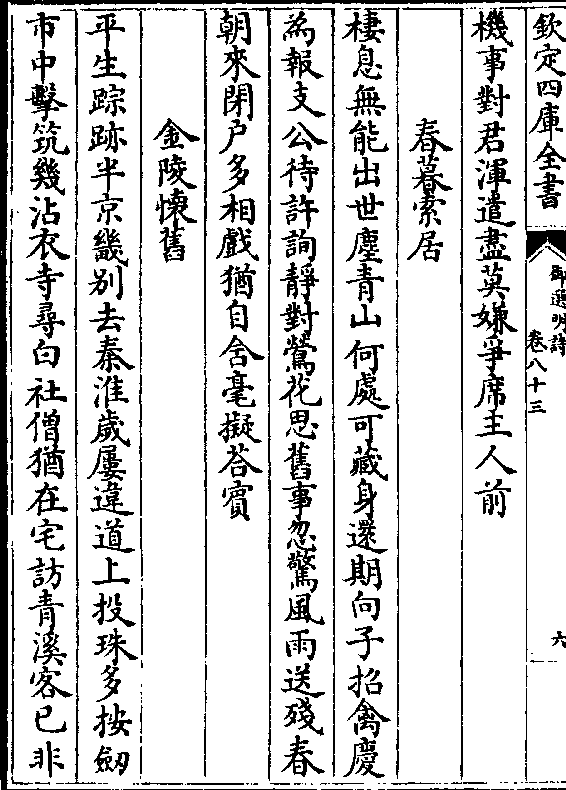 欽定四庫全書
御選明詩
卷八十三
六
機事對君渾遣盡莫嫌爭席主人前
春暮索居
棲息無能出世塵青山何處可藏身還期向子招禽慶
為報支公待許詢靜對鶯花思舊事忽驚風雨送殘春
朝來閉戶多相戲猶自含毫擬荅賓
金陵懷舊
平生踪跡半京畿別去秦淮歲屢違道上投珠多按劒
市中擊筑幾沾衣寺尋白社僧猶在宅訪青溪客已非